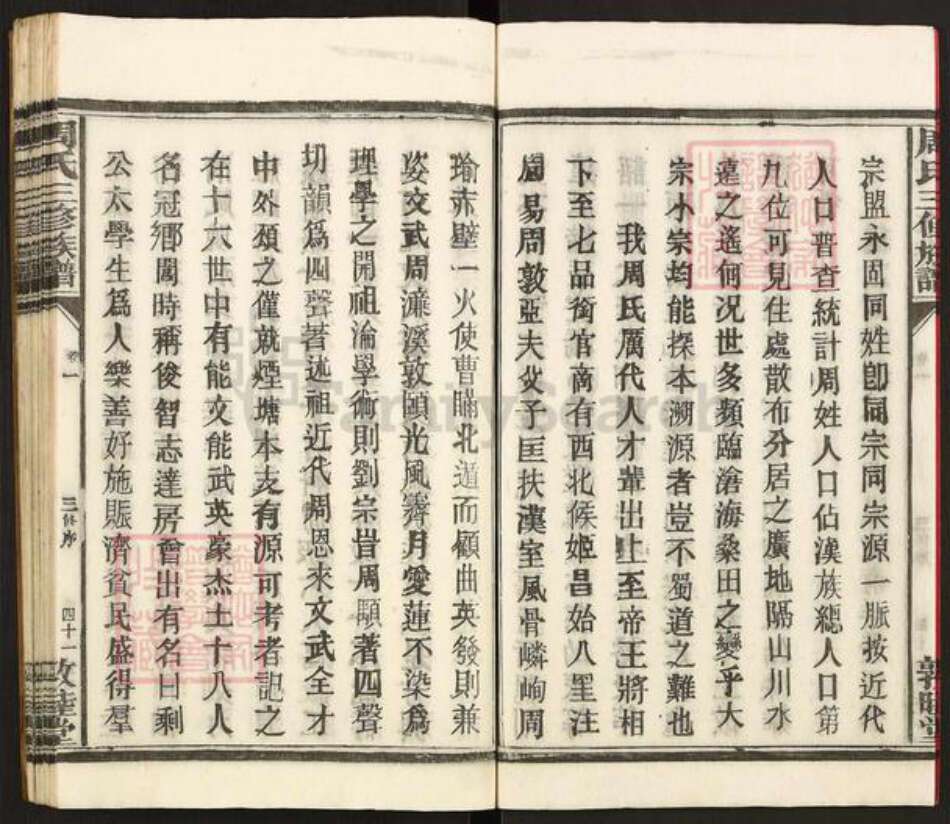 宗盟永固同姓卽同宗同宗源一脈按近代
人口普查統計周姓人口佔漢族總人口第
九位可見住處散布分居之廣地隔山川水
遠之遙何況世多頻臨滄海桑田之變乎大
宗小宗均能探本溯源者豈不蜀道之難也
我周氏厲代人才輩出上至帝王將相
下至七品銜官商有西北候姬昌始八里注
周易周敦亞夫父子匡扶漢室風骨嶙峋周
周氏三修族譜
卷一
敦睦堂
瑜赤壁一火使曹瞞北遁而顧曲英發則兼
姿文武周濂溪敦頤光風霽月愛蓮不染爲
理學之開祖淪學術則劉宗旹周顒著四聲
切韻爲四聲著述祖近代周恩来文武全才
中外頌之僅就煙塘本支有源可考者記之
在十六世中有能文能武英豪杰士十八人
名冠鄉閭時稱俊智志達房會出有名曰剩
公太學生爲人樂善好施賑濟貧民盛得羣
周氏三修族譜
卷一
三修序
四十一
敦睦堂
FamilySearch